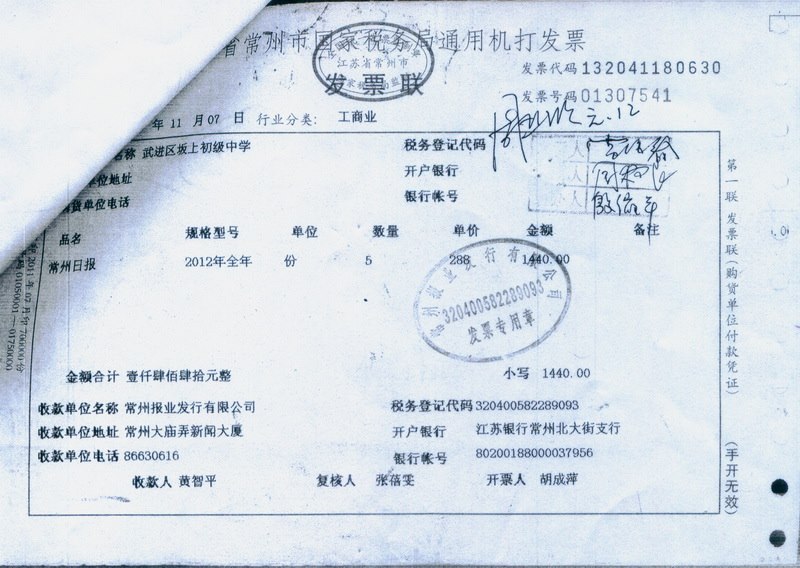 省常州市国家税务局通用机打发票
江苏省常州市
发票联
发票代码 132041180630
发票号码 01307541
年 11 月 07 日 行业分类: 工商业
名称 武进区坂上初级中学 税务登记代码
单位地址 开户银行
购货单位电话 银行帐号
品名 规格型号 单位 数量 单价 金额 备注
常州日报 2012年全年 份 5 288 1440.00
常州报业发行有限公司
320400582289093
发票专用章
金额合计 壹仟肆佰肆拾元整 小写 1440.00
收款单位名称 常州报业发行有限公司 税务登记代码 320400582289093
收款单位地址 常州大庙弄新闻大厦 开户银行 江苏银行常州北大街支行
收款单位电话 86630616 银行帐号 80200188000037956
收款人 黄智平 复核人 张蓓雯 开票人 胡成萍
第一联 发票联(购货单位付款凭证)
(手开无效)
2011年02月印 70000份
号码 01050001－01750000